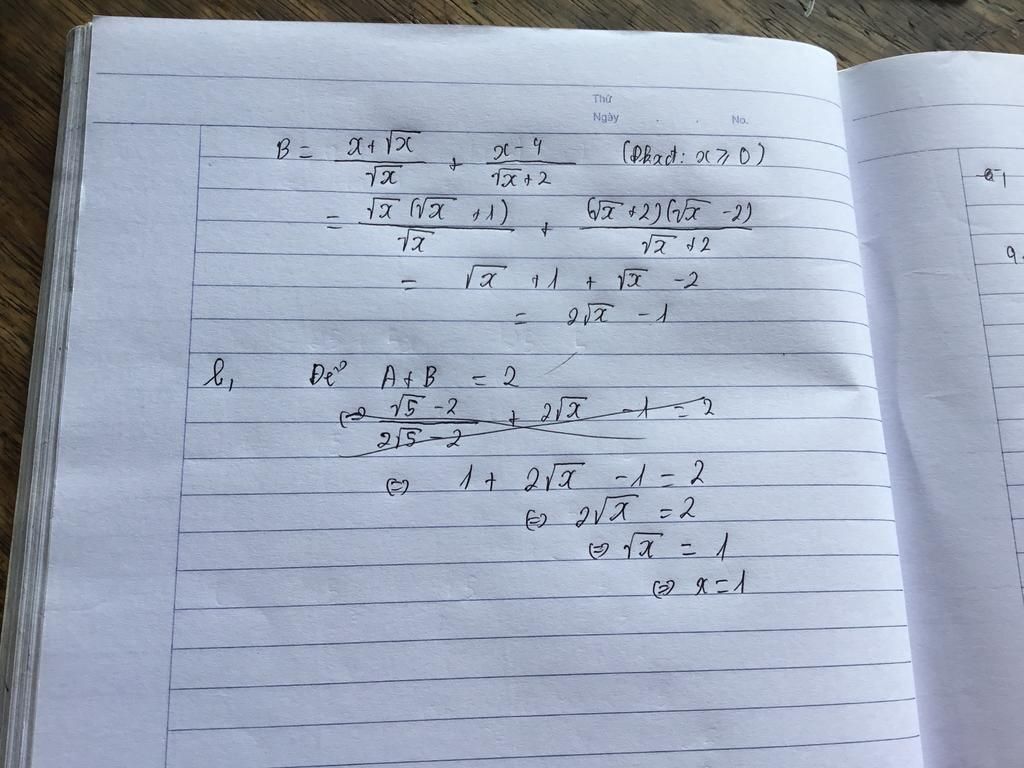 Thứ
Ngày . . No.
B = \frac{x+\sqrt{x}}{\sqrt{x}} + \frac{x-4}{\sqrt{x}+2} (Đkxđ: x ⩾ 0)
= \frac{\sqrt{x}(\sqrt{x}+1)}{\sqrt{x}} + \frac{(\sqrt{x}+2)(\sqrt{x}-2)}{\sqrt{x}+2}
= \sqrt{x} + 1 + \sqrt{x} - 2
= 2\sqrt{x} - 1
b, Để A + B = 2
⇔ \frac{\sqrt{5}-2}{2\sqrt{5}-2} + 2\sqrt{x} - 1 = 2
⇔ 1 + 2\sqrt{x} - 1 = 2
⇔ 2\sqrt{x} = 2
⇔ \sqrt{x} = 1
⇔ x = 1